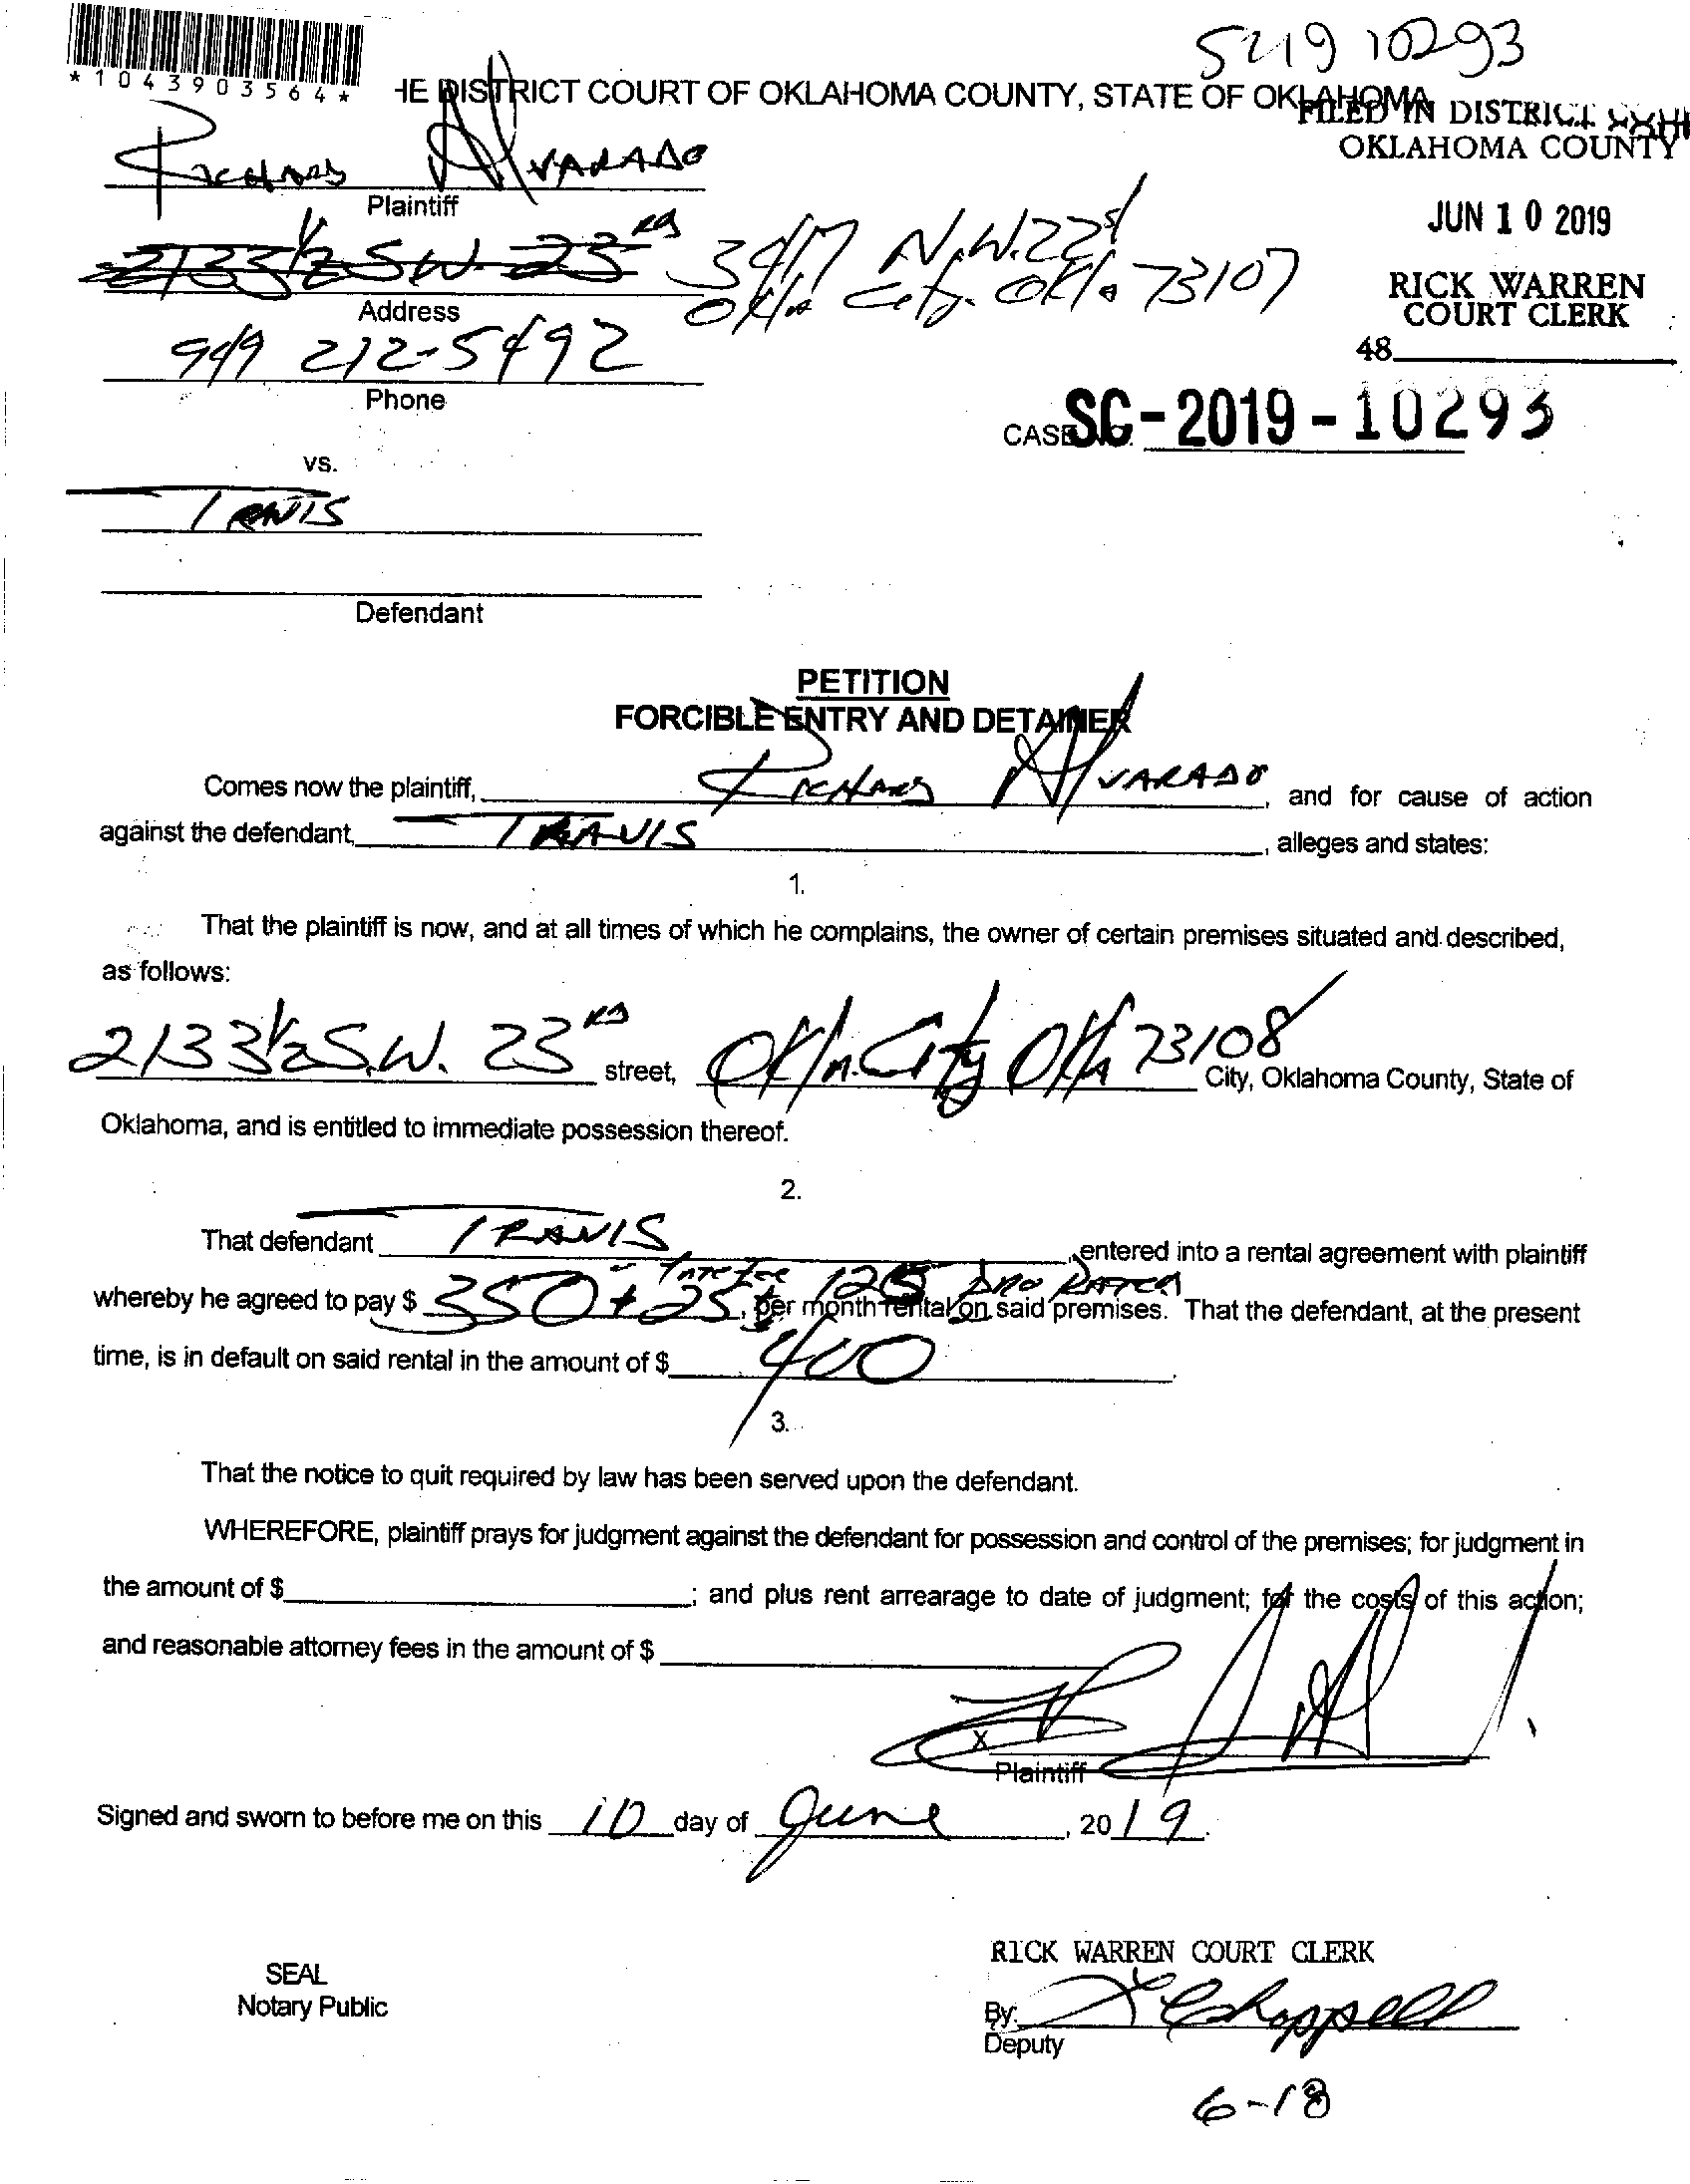 *1043903564*
5419 10293
HE DISTRICT COURT OF OKLAHOMA COUNTY, STATE OF OKLAHOMA
FILED IN DISTRICT
OKLAHOMA COUNTY
Richard Alvarado
Plaintiff
JUN 10 2019
2133 1/2 S.W. 23rd
3417 N.W. 22
Okla City. Okla 73107
RICK WARREN
COURT CLERK
Address
48
949 212-5492
Phone
CASE NO. SC-2019-10293
vs.
TRAVIS
Defendant
PETITION
FORCIBLE ENTRY AND DETAINER
Comes now the plaintiff, Richard Alvarado, and for cause of action
against the defendant, TRAVIS, alleges and states:
1.
That the plaintiff is now, and at all times of which he complains, the owner of certain premises situated and described,
as follows:
2133 1/2 S.W. 23rd street, Okla. City Okla 73108 City, Oklahoma County, State of
Oklahoma, and is entitled to immediate possession thereof.
2.
That defendant TRAVIS, entered into a rental agreement with plaintiff
Late Fee 125 Pro Rated
whereby he agreed to pay $ 350 + 25, per month rental on said premises. That the defendant, at the present
time, is in default on said rental in the amount of $ 400.
3.
That the notice to quit required by law has been served upon the defendant.
WHEREFORE, plaintiff prays for judgment against the defendant for possession and control of the premises; for judgment in
the amount of $; and plus rent arrearage to date of judgment; for the costs of this action;
and reasonable attorney fees in the amount of $
X
Plaintiff
Signed and sworn to before me on this 10 day of June, 2019.
RICK WARREN COURT CLERK
SEAL
Notary Public
By: Chappell
Deputy
6-18